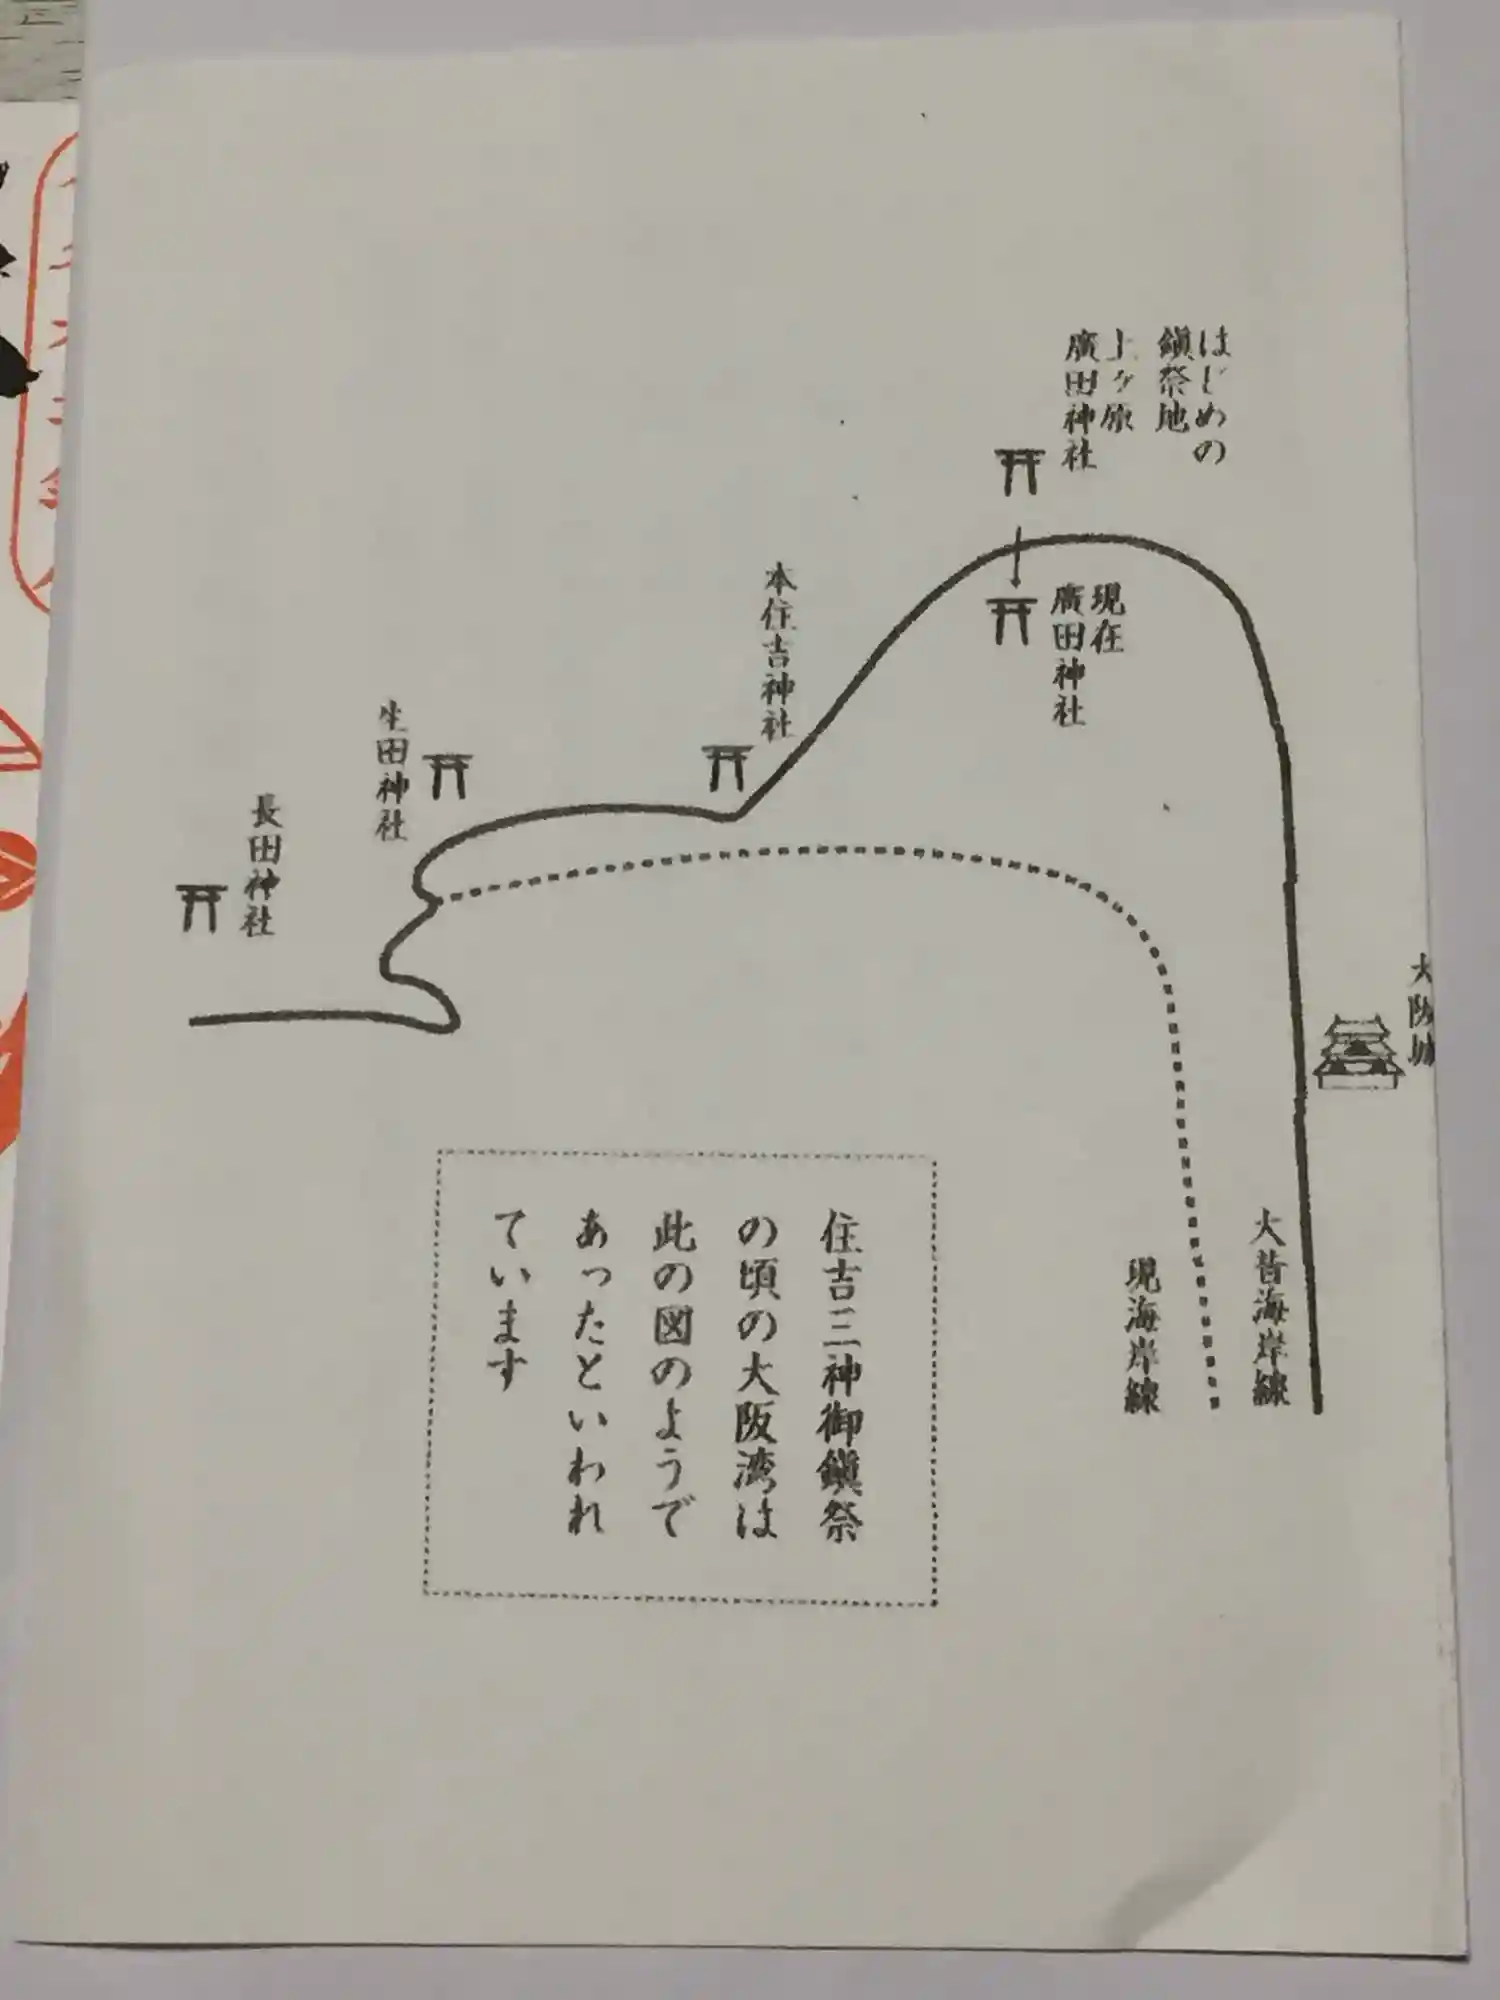 はじめの
鎭祭地
上ヶ原
廣田神社
現在
廣田神社
本住吉神社
生田神社
長田神社
大阪城
大昔海岸線
現海岸線
住吉三神御鎭祭
の頃の大阪湾は
此の図のようで
あったといわれ
ています